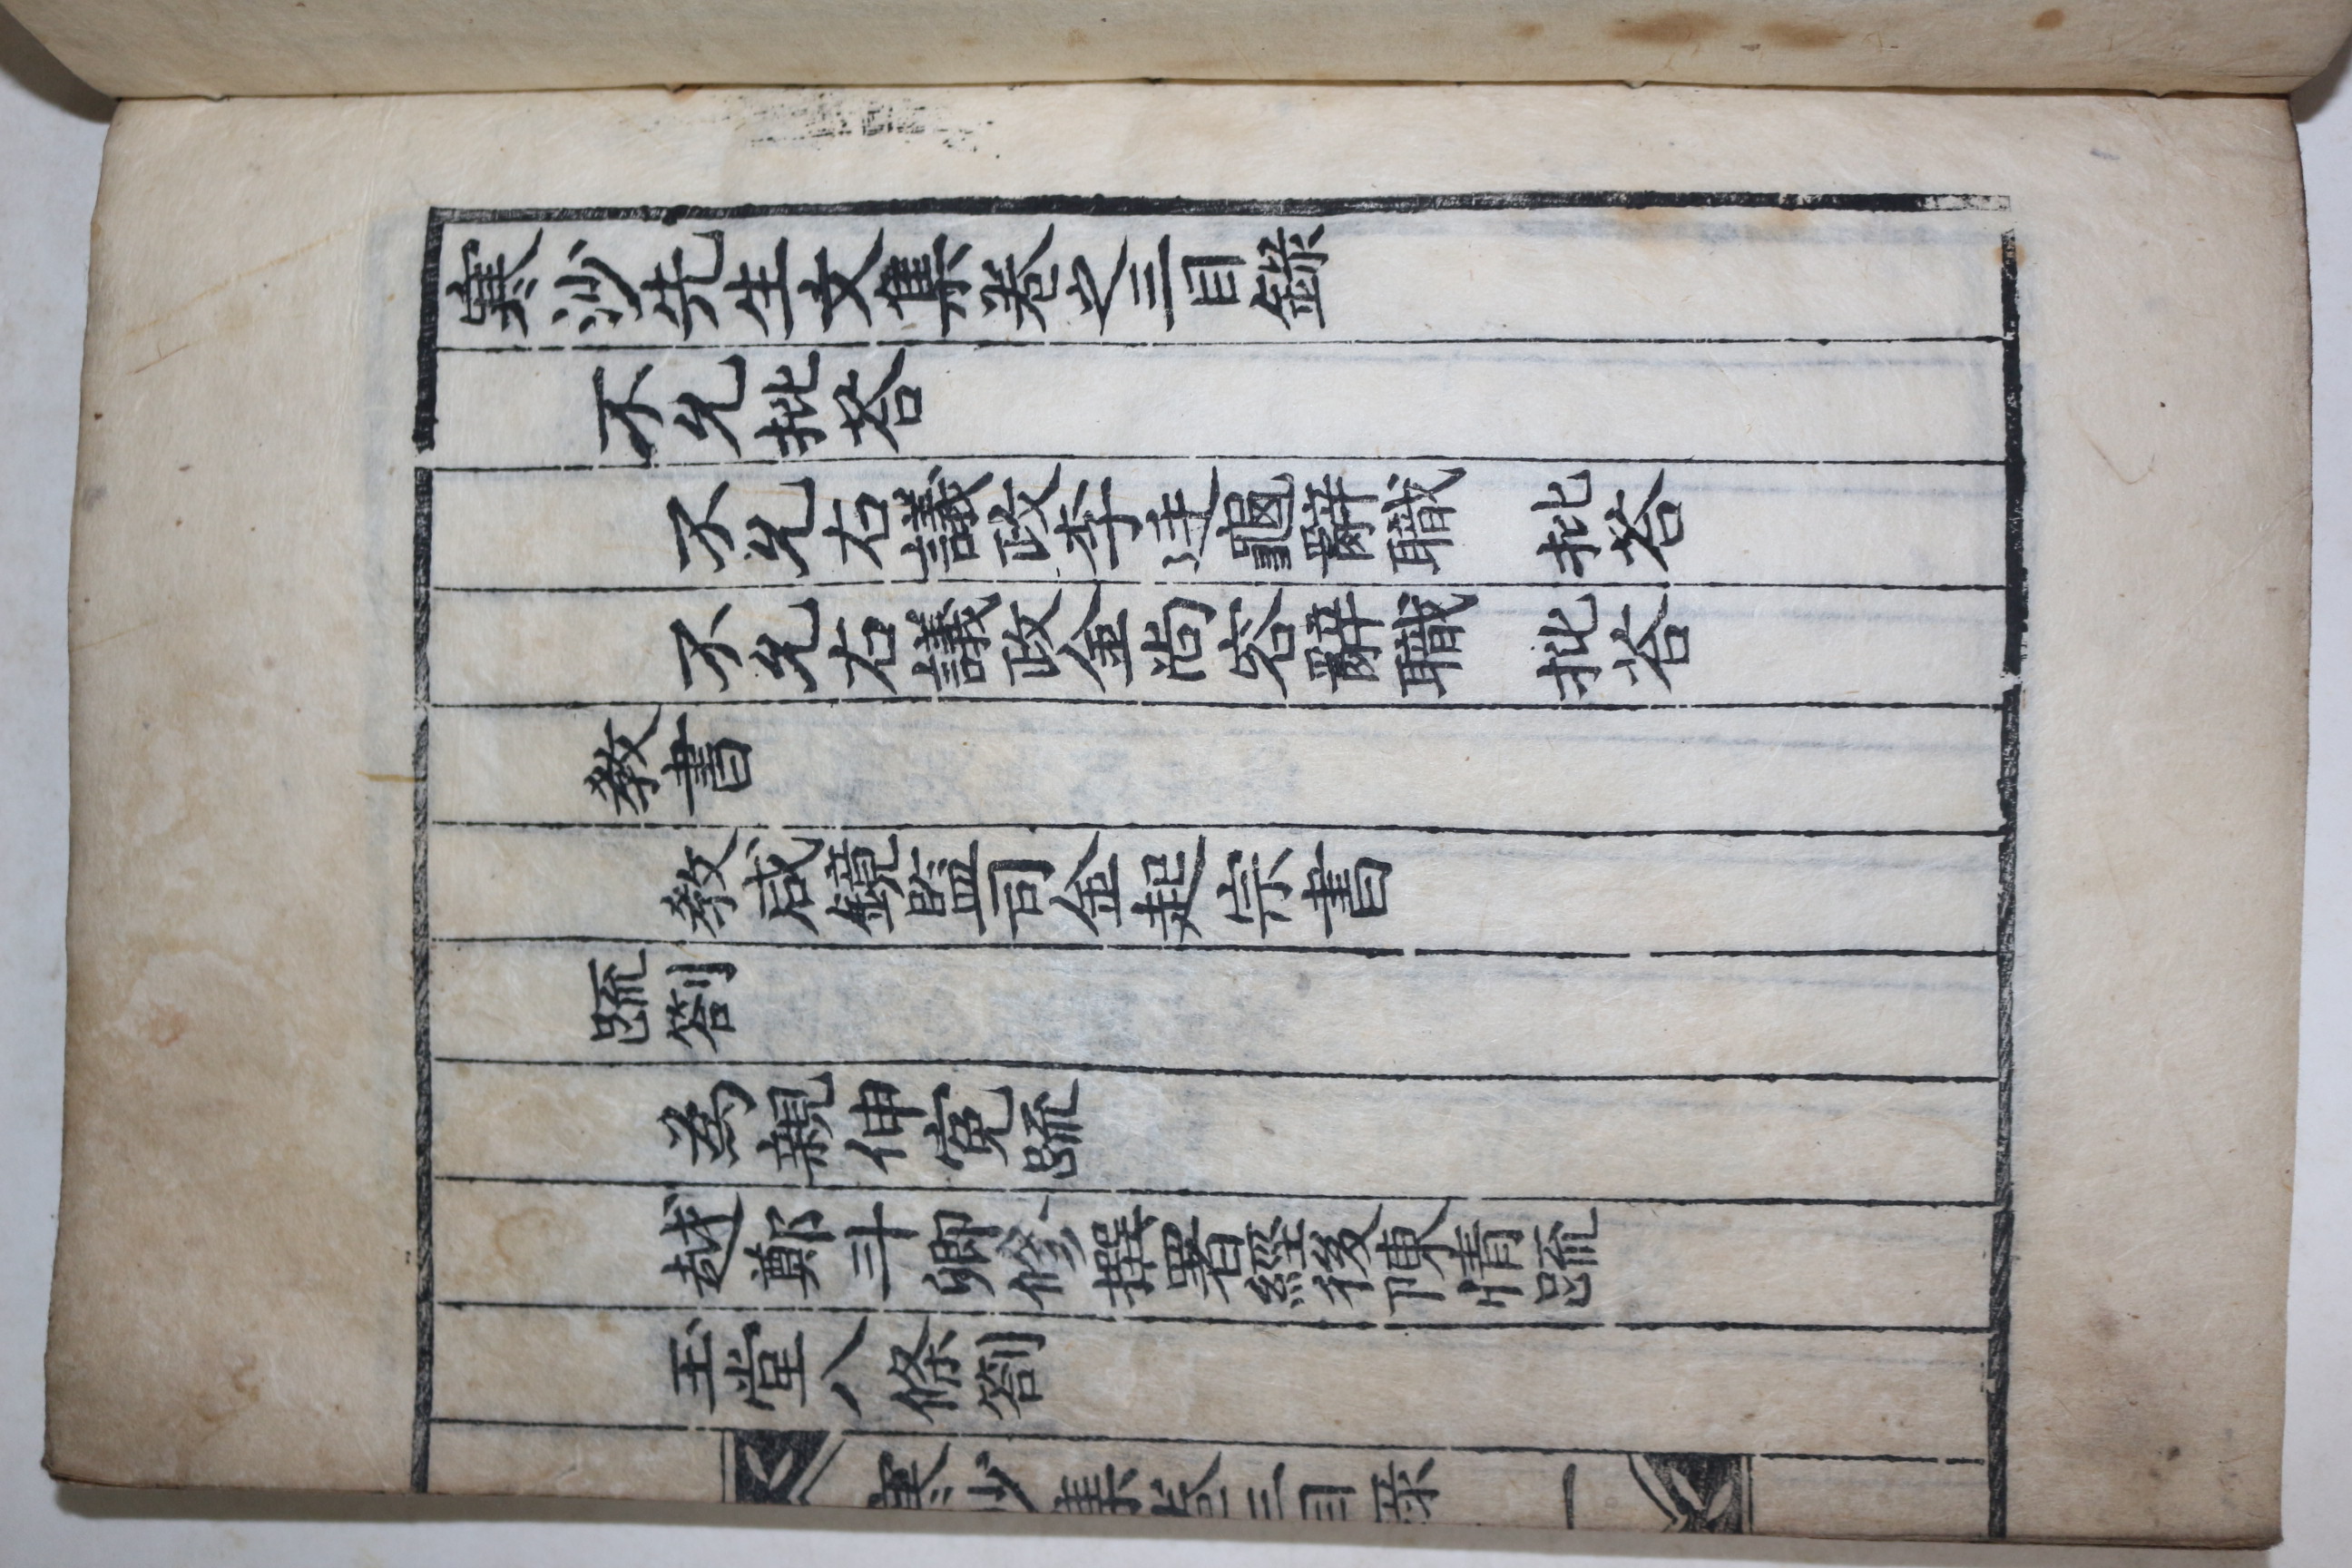 寒沙先生文集卷之三目錄
不允批荅
不允右議政李廷龜辭職 批荅
不允右議政金尚容辭職 批荅
敎書
敎咸鏡監司金起宗書
䟽劄
為親伸寃䟽
越鄭斗卿修撰署經後陳情䟽
玉堂八條劄
寒沙集卷三目录 一